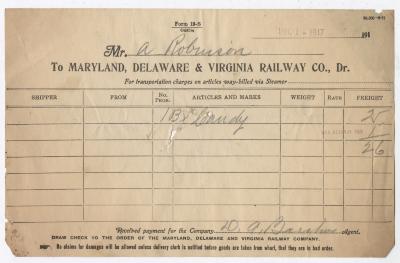 Form 19-S
Mr. A Robinson
DEC 1 - 1917
191
To MARYLAND, DELAWARE & VIRGINIA RAILWAY CO., Dr.
For transportation charges on articles way-billed via Steamer
SHIPPER FROM No. Pkgs. ARTICLES AND MARKS WEIGHT RATE FREIGHT
1 Bx Candy 25
1
26
Received payment for the Company, Agent.
DRAW CHECK TO THE ORDER OF THE MARYLAND, DELAWARE AND VIRGINIA RAILWAY COMPANY.
No claims for damages will be allowed unless delivery clerk is notified before goods are taken from wharf, that they are in bad order.